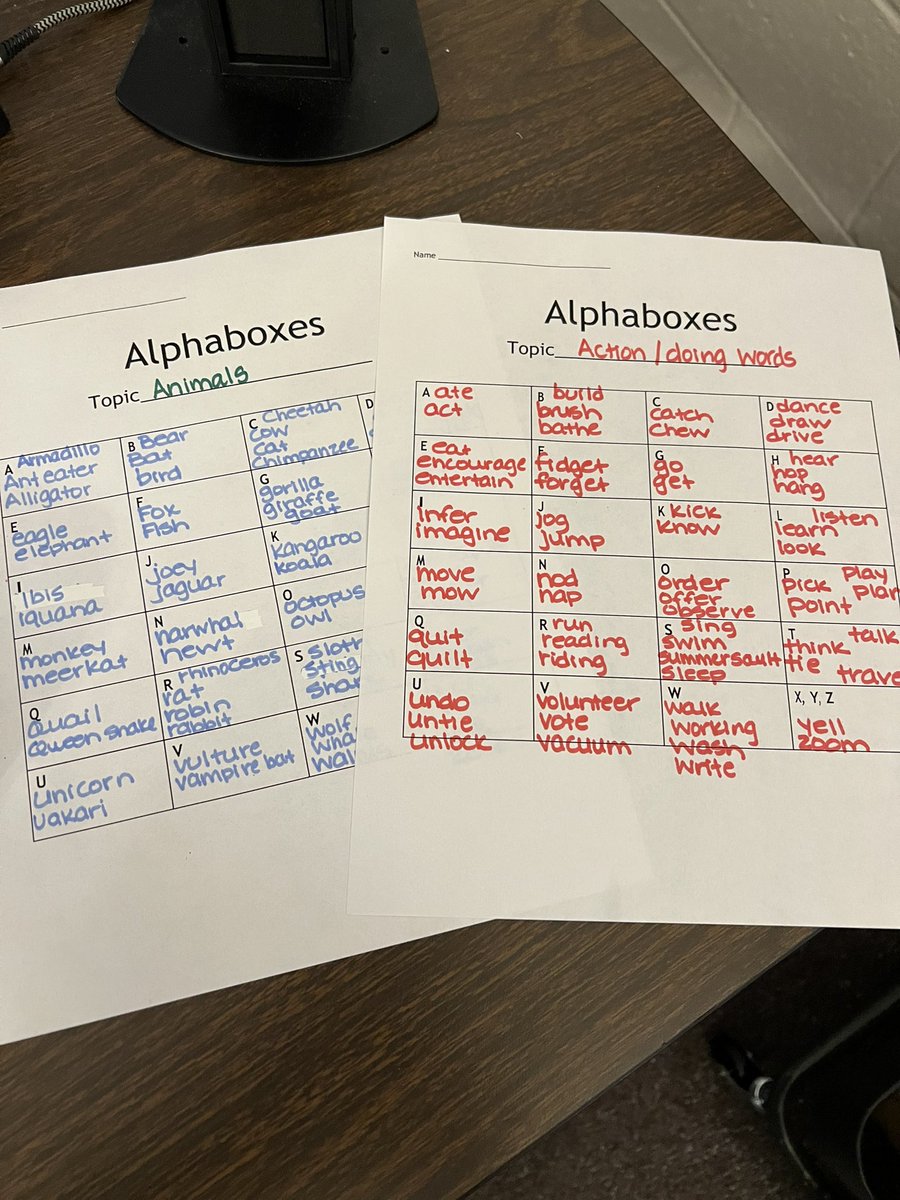 Alphaboxes
Topic Animals
A Armadillo
Ant eater
Alligator
B Bear
Bat
bird
C Cheetah
cow
cat
Chimpanzee
D
E
eagle
elephant
F
Fox
Fish
G
gorilla
giraffe
goat
I
Ibis
iguana
J
joey
jaguar
K
Kangaroo
koala
M
monkey
meerkat
N
narwhal
newt
O
octopus
owl
Q
Quail
Queen snake
R rhinoceros
rat
robin
rabbit
S
sting
U
unicorn
uakari
V
vulture
vampire bat
W
wolf
Name
Alphaboxes
Topic Action/doing words
A ate
act
B build
brush
bathe
C
catch
chew
D dance
draw
drive
E eat
encourage
entertain
F
fidget
forget
G
go
get
H hear
hop
hang
I
infer
imagine
J
jog
jump
K kick
know
L listen
learn
look
M
move
mow
N
nod
nap
O
order
offer
observe
P play
pick plan
point
Q
quit
quilt
R run
reading
riding
S sing
swim
summersault
sleep
T talk
think
tie
trave
U
undo
untie
unlock
V
volunteer
vote
vacuum
W
walk
working
wash
write
X, Y, Z
yell
zoom